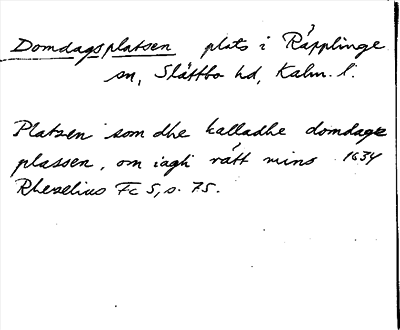 Domdagsplatsen plats i Räpplinge
sn, Slättbo hd, Kalm. l.
Platsen som dhe kalladhe domdags
plassen, om iagh rätt mins 1634
Rhezelius Fc 5, s. 75.